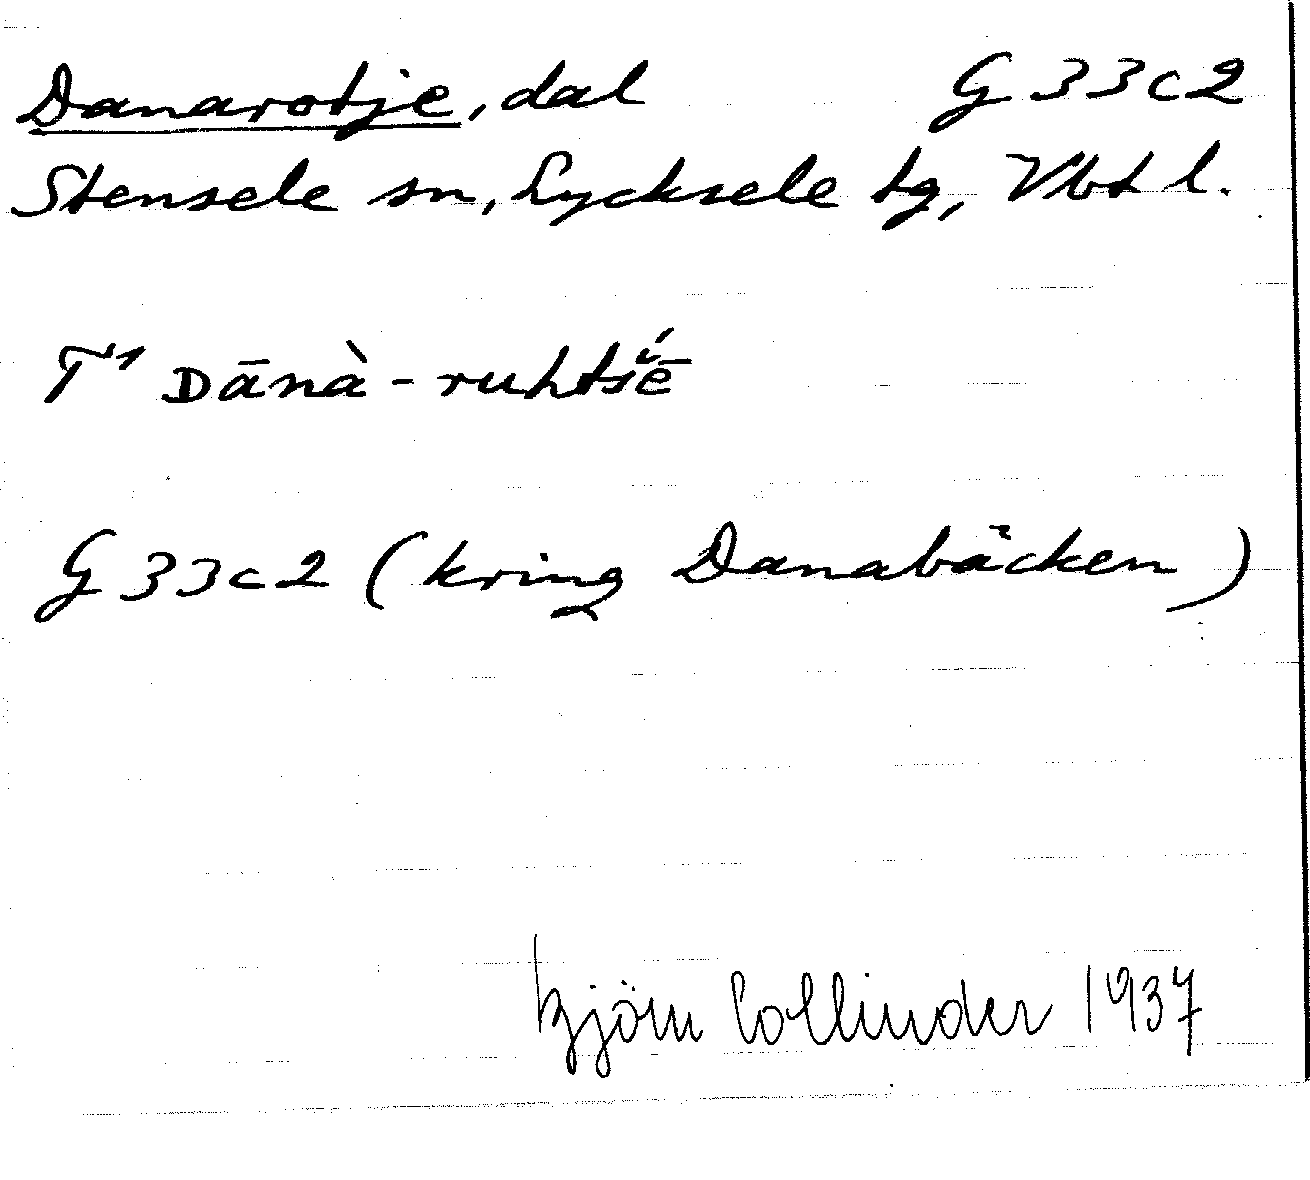 Danarotje, dal G33c2
Stensele sn, Lycksele tg, Vbtl.
T1 ᴅānà-ruhtšḗ
G33c2 (kring Danabäcken)
Björn Collinder 1937